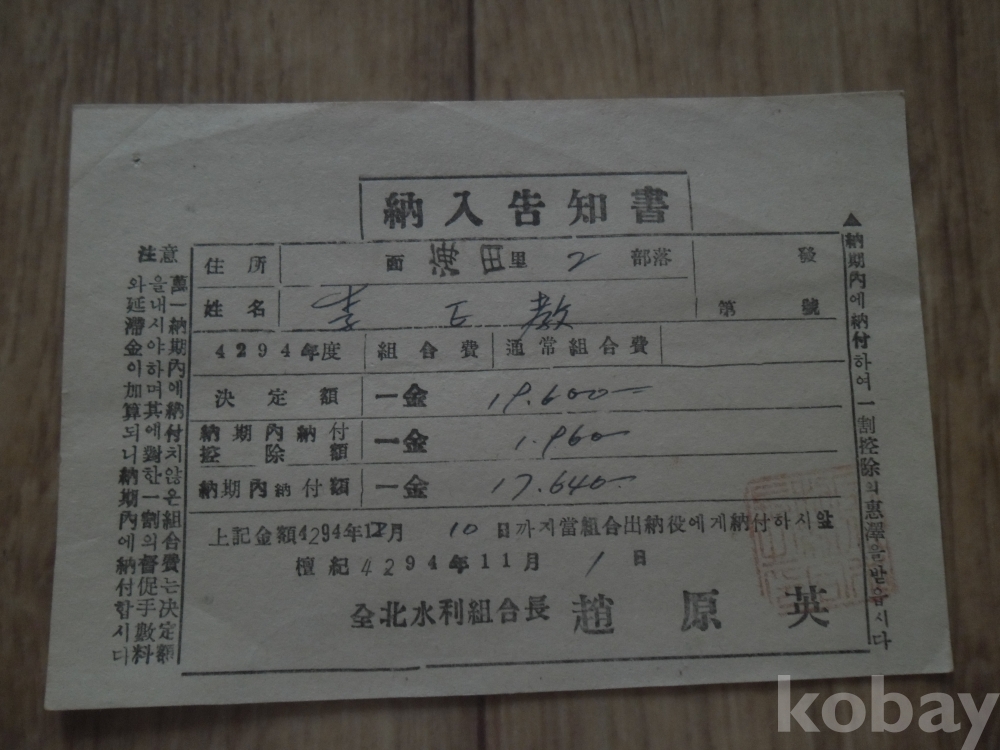 納入告知書
住所 面 海田里 2 部落 發
姓名 李 敎 第 號
4294年度 組合費 通常組合費
決定額 一金 19.600
納期內納付控除額 一金 1.960
納期內納付額 一金 17.640
上記金額4294年12月 10 日까지當組合出納役에게納付하시앞
檀紀4294年11月 1 日
全北水利組合長 趙原英
▲納期內에納付하여一割控除의惠澤을받읍시다
注意
萬一納期內에納付치않은組合費는决定額
을내시야하며其에對한一割의督促手數料
와延滯金이加算되니納期內에納付합시다
kobay